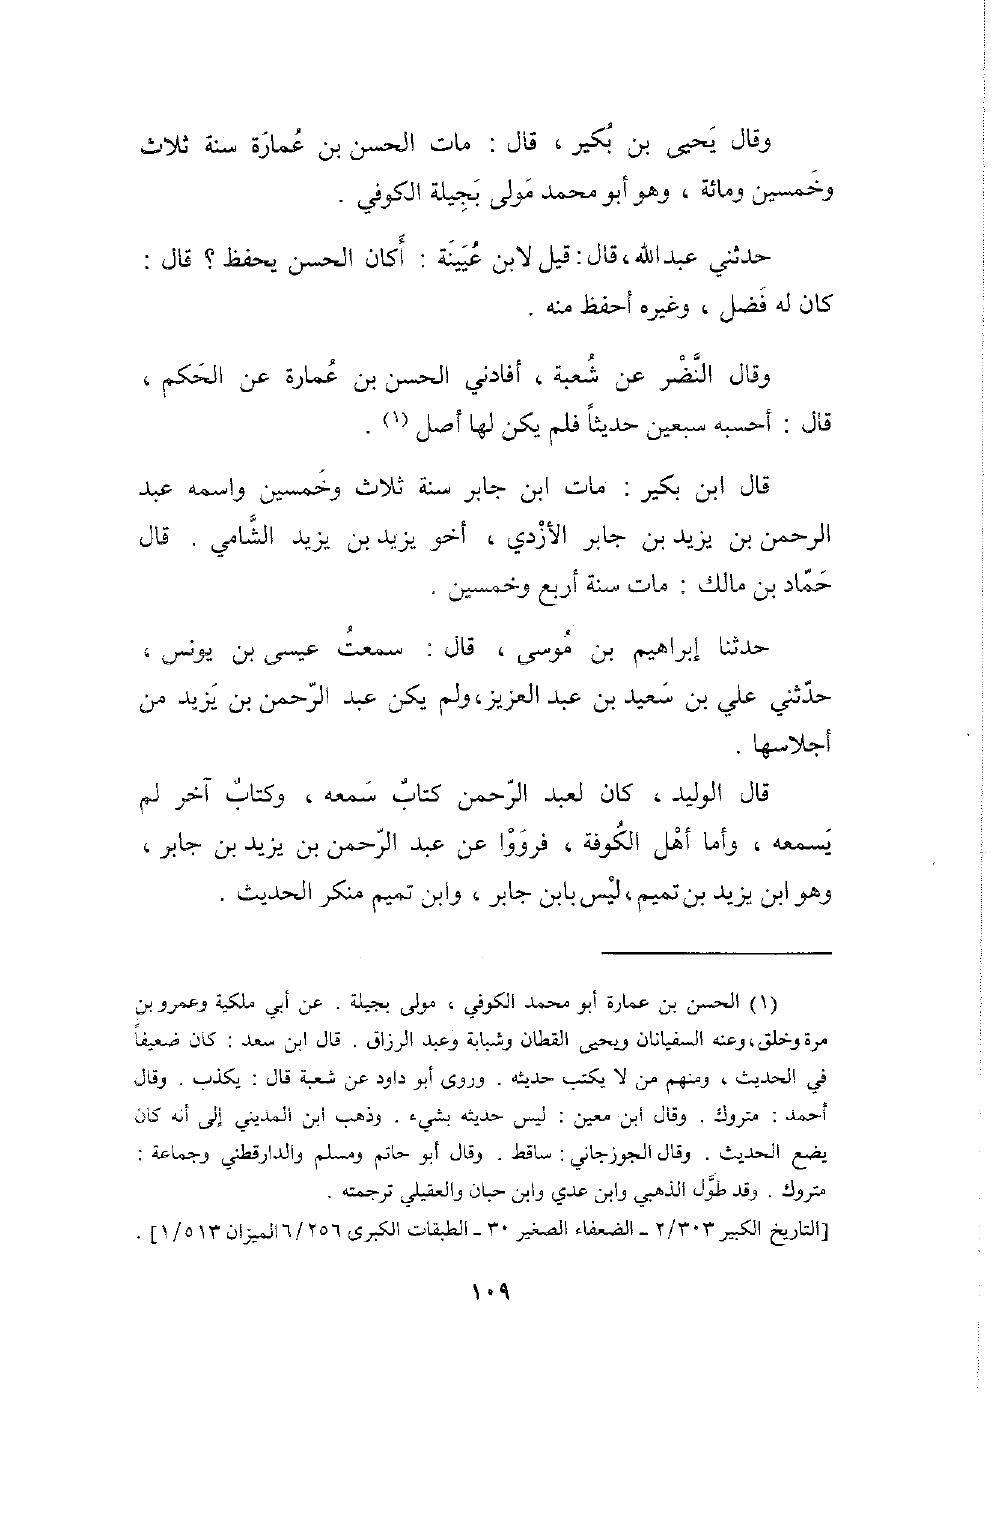 وقال يَحيى بن بُكير ، قال : مات الحسن بن عُمارَة سنة ثلاث
وخَمسين ومائة ، وهو أبو محمد مَولى بَجِيلة الكوفي .
حدثني عبدالله ، قال : قيل لابن عُيَينَة : أَكان الحسن يحفظ ؟ قال :
كان له فَضل ، وغيره أحفظ منه .
وقال النَّضْر عن شُعبة ، أفادني الحسن بن عُمارة عن الحَكم ،
قال : أحسبه سبعين حديثاً فلم يكن لها أصل (١) .
قال ابن بكير : مات ابن جابر سنة ثلاث وخَمسين واسمه عبد
الرحمن بن يزيد بن جابر الأزْدي ، أخو يزيد بن يزيد الشَّامي . قال
حَمّاد بن مالك : مات سنة أربع وخمسين .
حدثنا إبراهيم بن مُوسى ، قال : سمعتُ عيسى بن يونس ،
حدّثني علي بن سَعيد بن عبد العزيز ، ولم يكن عبد الرّحمن بن يَزيد من
أجلاسها .
قال الوليد ، كان لعبد الرّحمن كتابٌ سَمعه ، وكتابٌ آخر لم
يَسمعه ، وأما أهْل الكُوفة ، فروَوْا عن عبد الرّحمن بن يزيد بن جابر ،
وهو ابن يزيد بن تميم ، ليْس بابن جابر ، وابن تميم منكر الحديث .
(١) الحسن بن عمارة أبو محمد الكوفي ، مولى بجيلة . عن أبي ملكية وعمرو بن
مرة وخلق ، وعنه السفيانان ويحيى القطان وشبابة وعبد الرزاق . قال ابن سعد : كان ضعيفاً
في الحديث ، ومنهم من لا يكتب حديثه . وروى أبو داود عن شعبة قال : يكذب . وقال
أحمد : متروك . وقال ابن معين : ليس حديثه بشيء . وذهب ابن المديني إلى أنه كان
يضع الحديث . وقال الجوزجاني : ساقط . وقال أبو حاتم ومسلم والدارقطني وجماعة :
متروك . وقد طوَّل الذهبي وابن عدي وابن حبان والعقيلي ترجمته .
[التاريخ الكبير ٢/٣٠٣ ـ الضعفاء الصغير ٣٠ ـ الطبقات الكبرى ٦/٢٥٦ الميزان ١/٥١٣] .
١٠٩